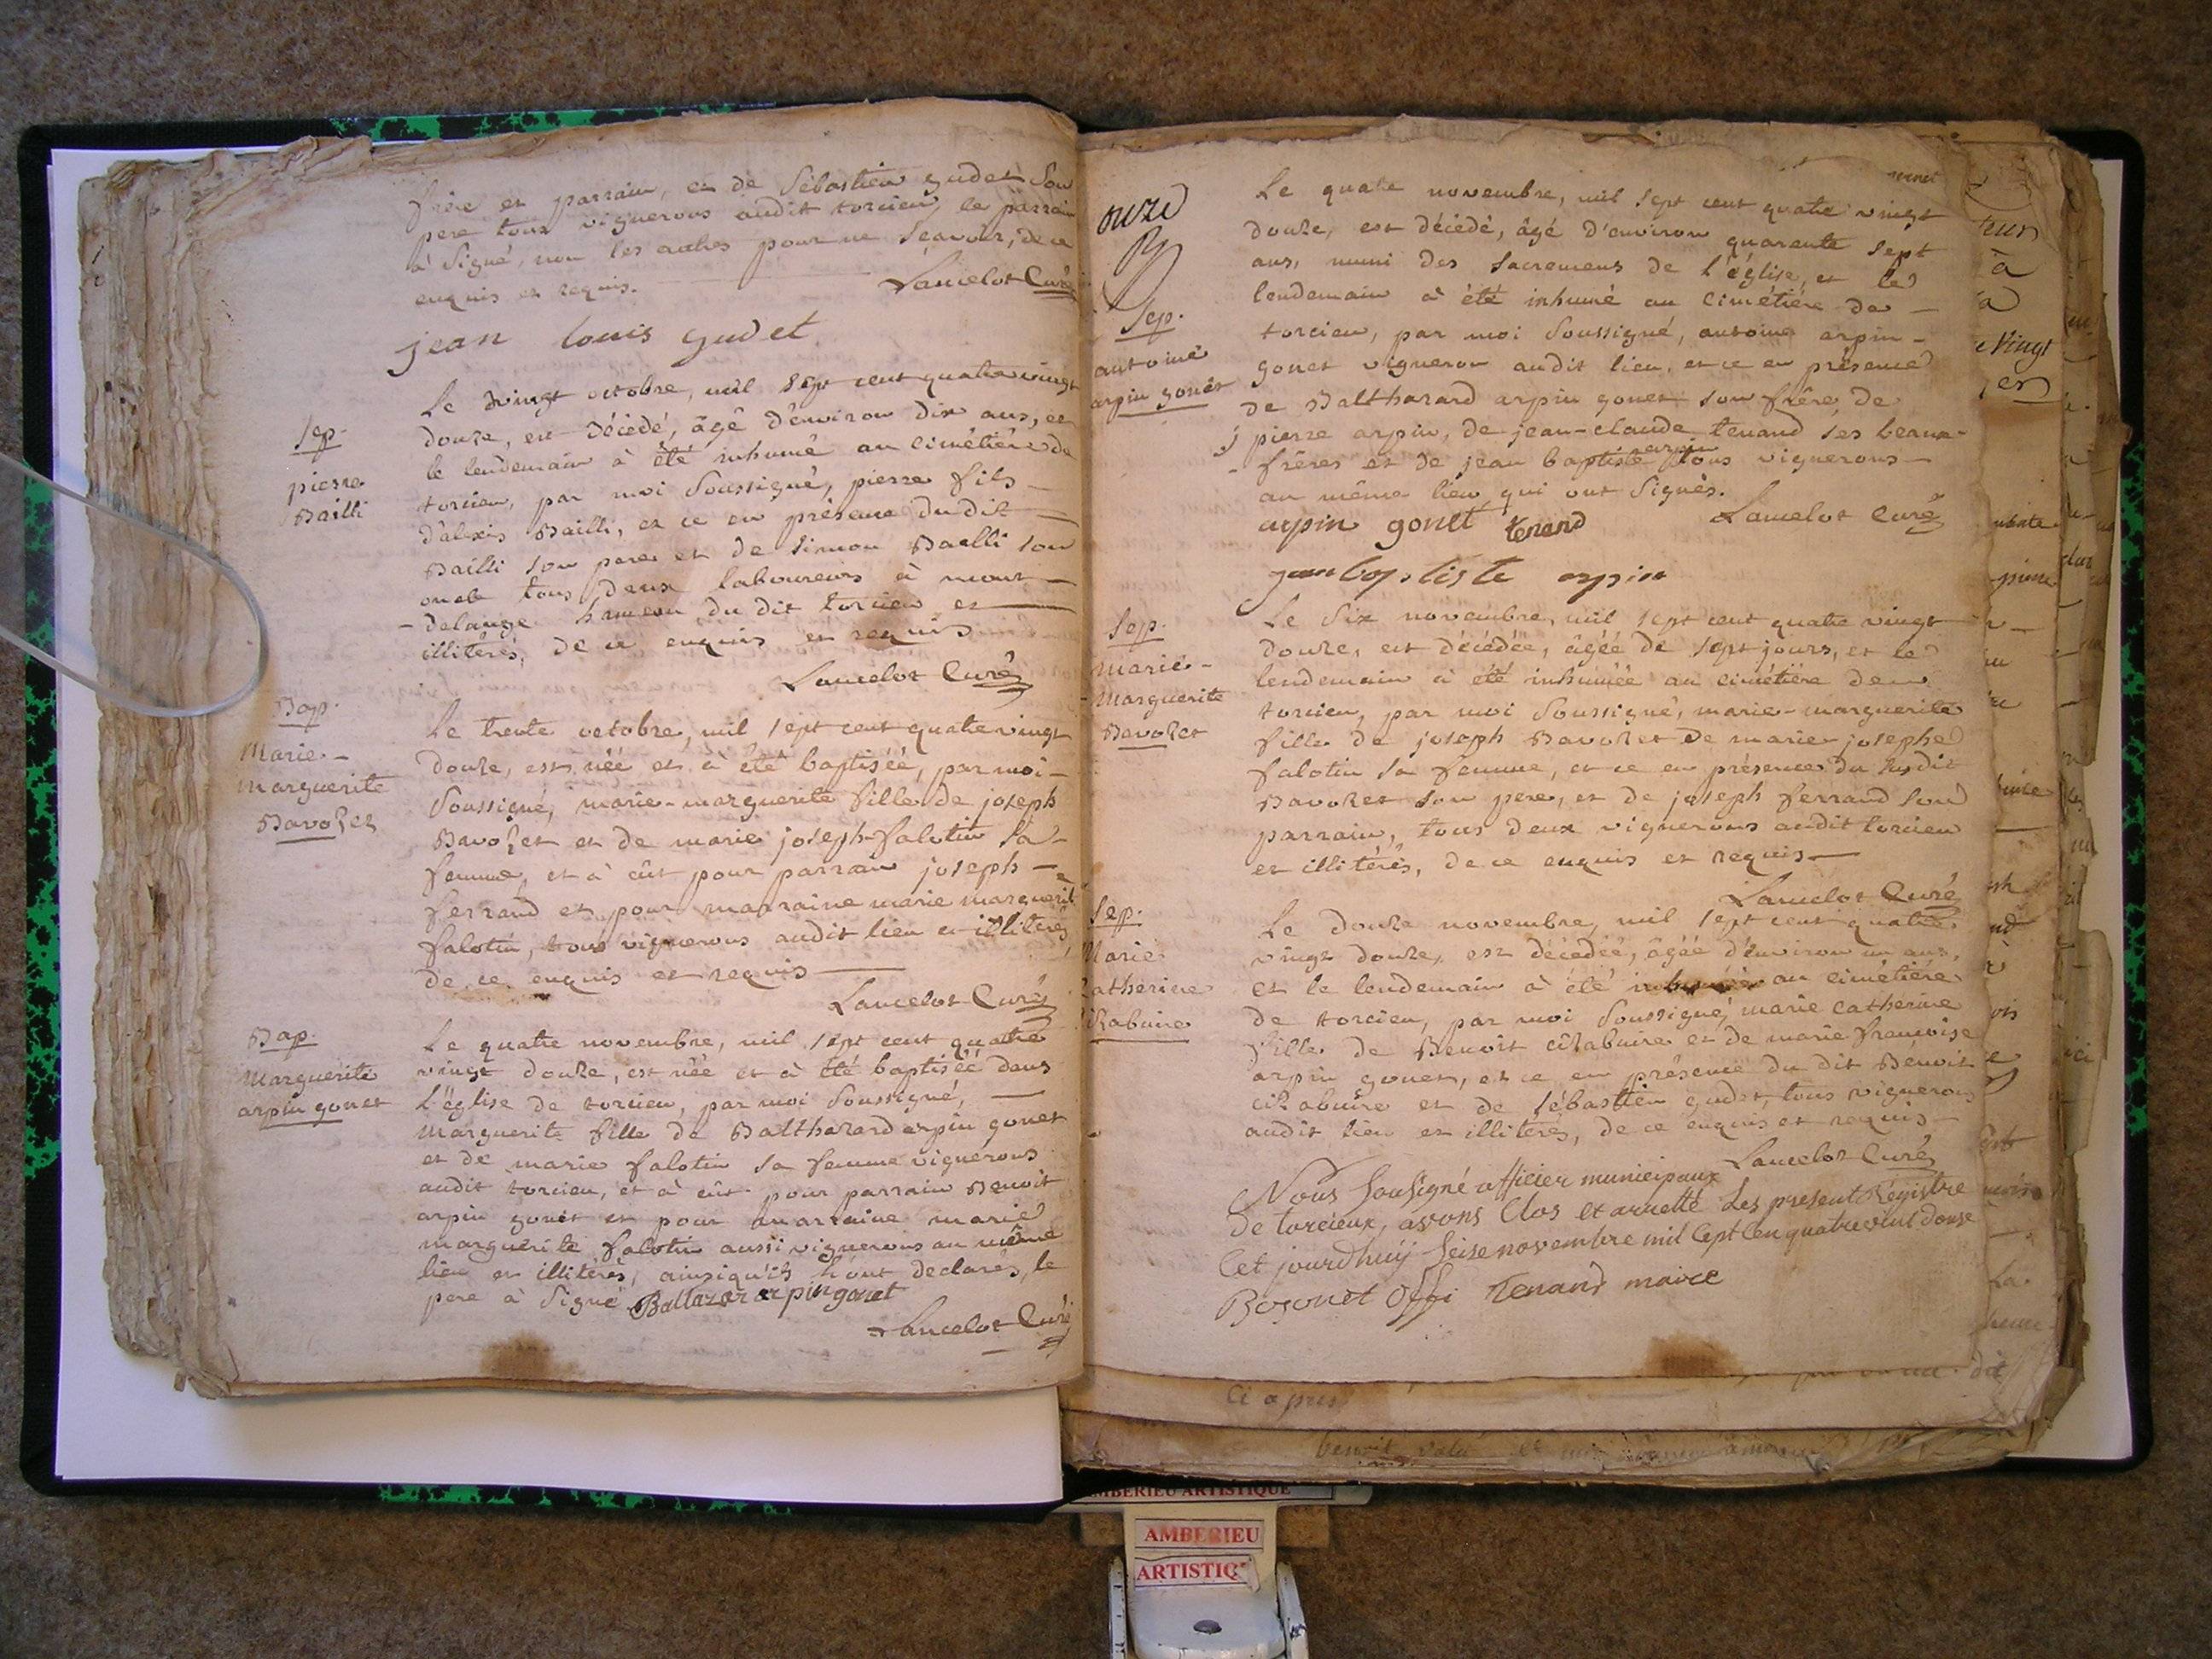 frère et parrain, et de Sébastien gudet son
pere tous vignerons audit torcieu, le parrain
à Signé, non les autres pour ne Sçavoir, de ce
enquis et requis.
Lancelot Curé
jean louis gudet
Sep.
pierre
Bailli
Le vingt octobre, mil sept cent quatre vingt
douze, est décédé, âgé d'environ dix ans, et
le lendemain à été inhumé au cimétière de
torcieu, par moi Soussigné, pierre fils
d'alexis Bailli, et ce en présence du dit
Bailli son pere et de Simon Bailli son
oncle tous deux laboureurs à mont-
delange hameau du dit torcieu et
illitérés, de ce enquis et requis
Lancelot Curé
Bap.
Marie-
Marguerite
Bavozet
Le trente octobre, mil sept cent quatre vingt
douze, est néé et à été baptiséé, par moi
Soussigné, marie-marguerite fille de joseph
Bavozet et de marie joseph falotin sa
femme, et à eût pour parrain joseph
ferrand et pour marraine marie marguerite
falotin, tous vignerons audit lieu et illitérés
de ce enquis et requis
Lancelot Curé
Bap.
Marguerite
arpin gonet
Le quatre novembre, mil sept cent quatre
vingt douze, est néé et à été baptiséé dans
L'église de torcieu, par moi Soussigné,
Marguerite fille de Balthazard arpin gonet
et de marie falotin sa femme vignerons
audit torcieu, et à eût pour parrain Benoit
arpin gonet et pour marraine marie
marguerite falotin aussi vignerons au même
lieu et illitérés, ainsi qu'ils l'ont declarés, le
pere à Signé Baltazar arpin gonet
Lancelot Curé
onze
Sep.
antoine
arpin gonet
Le quatre novembre, mil sept cent quatre vingt
douze, est décédé, âgé d'environ quarante sept
ans, muni des sacremens de L'église, et le
lendemain à été inhumé au cimétière de
torcieu, par moi Soussigné, antoine arpin-
gonet vigneron audit lieu, et ce en présence
de Balthazard arpin gonet son frère, de
pierre arpin, de jean-claude tenand ses beaux-
frères et de jean baptiste arpin tous vignerons
au même lieu qui ont Signés.
arpin gonet tenand Lancelot Curé
jean baptiste arpin
Sep.
Marie-
Marguerite
Bavozet
Le Six novembre, mil sept cent quatre vingt
douze, est décédéé, âgéé de sept jours, et le
lendemain à été inhuméé au cimétière de
torcieu, par moi Soussigné, marie-marguerite
fille de joseph Bavozet de marie josephe
falotin sa femme, et ce en présence du susdit
Bavozet son pere, et de joseph ferrand son
parrain, tous deux vignerons audit torcieu
et illitérés, de ce enquis et requis
Lancelot Curé
Sep.
Marie
Catherine
ciRabuire
Le douze novembre, mil sept cent quatre
vingt douze, est décédéé, âgéé d'environ un ans,
et le lendemain à été inhuméé au cimétière
de torcieu, par moi Soussigné, marie catherine
fille de Benoît ciRabuire et de marie françoise
arpin gonet, et ce en présence du dit Benoit
ciRabuire et de Sébastien gudet, tous vignerons
audit lieu et illitérés, de ce enquis et requis
Lancelot Curé
Nous Sousigné officier municipaux
de torcieux, avons Clos et arretté Les present Régistre
Cet jourdhuij Seise novembre mil Sept Cen quatre vint douse
Bozonet offi tenand maire
Ci apres
AMBERIEU ARTISTIQUE
AMBERIEU
ARTISTIQ